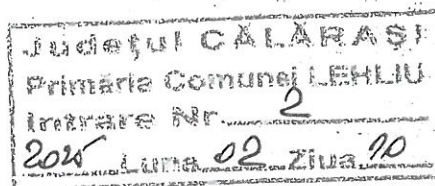 Județul CĂLĂRAȘI
Primăria Comunei LEHLIU
Intrare Nr. 2
2025 Luna 02 Ziua 20